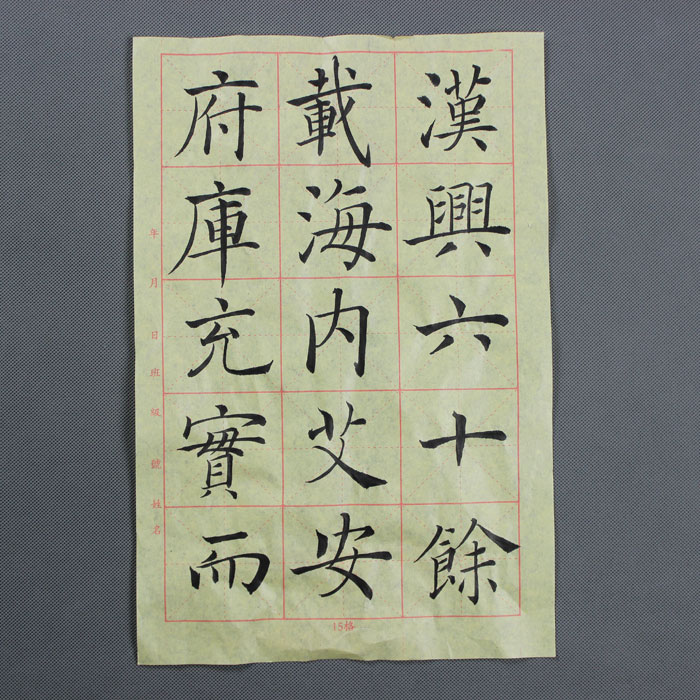 漢興六十餘
載海内艾安
府庫充實而
年月日班級號姓名
15格